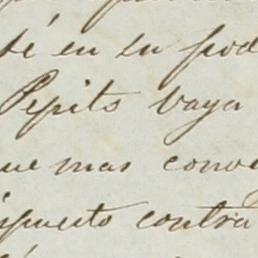 té en su pod
Pepito vaya
ue mas conve
spuesto contra